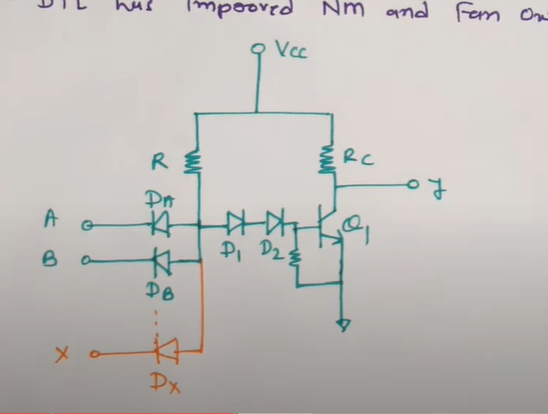 DTL has Impooved Nm and Fan Ou
Vcc
R
Rc
DA
A
y
Q1
B
D1
D2
DB
X
Dx